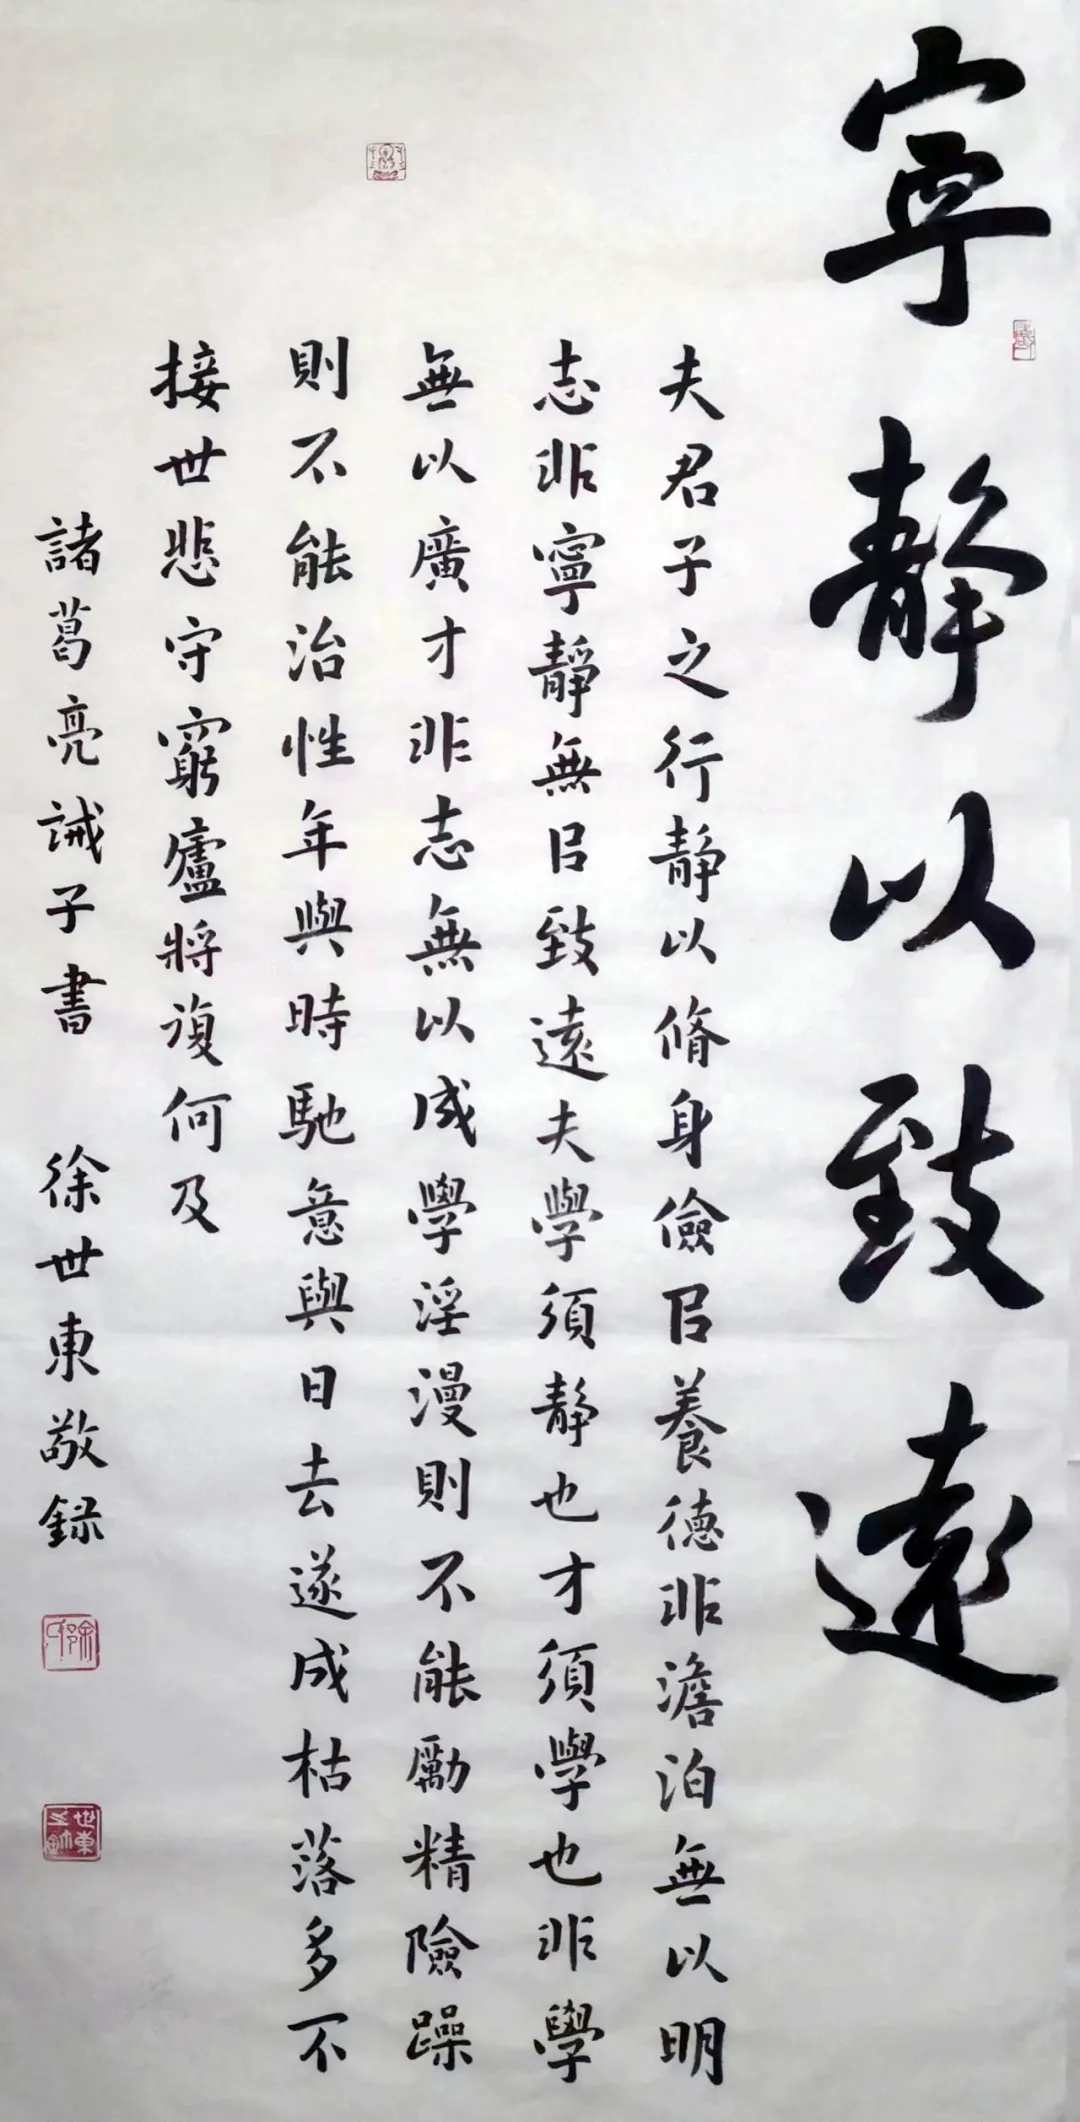 寧靜以致遠
夫君子之行静以脩身儉㠯養德非澹泊無以明
志非寧靜無㠯致遠夫學須静也才須學也非學
無以廣才非志無以成學淫漫則不能勵精險躁
則不能治性年與時馳意與日去遂成枯落多不
接世悲守窮廬將復何及
諸葛亮誡子書 徐世東敬録